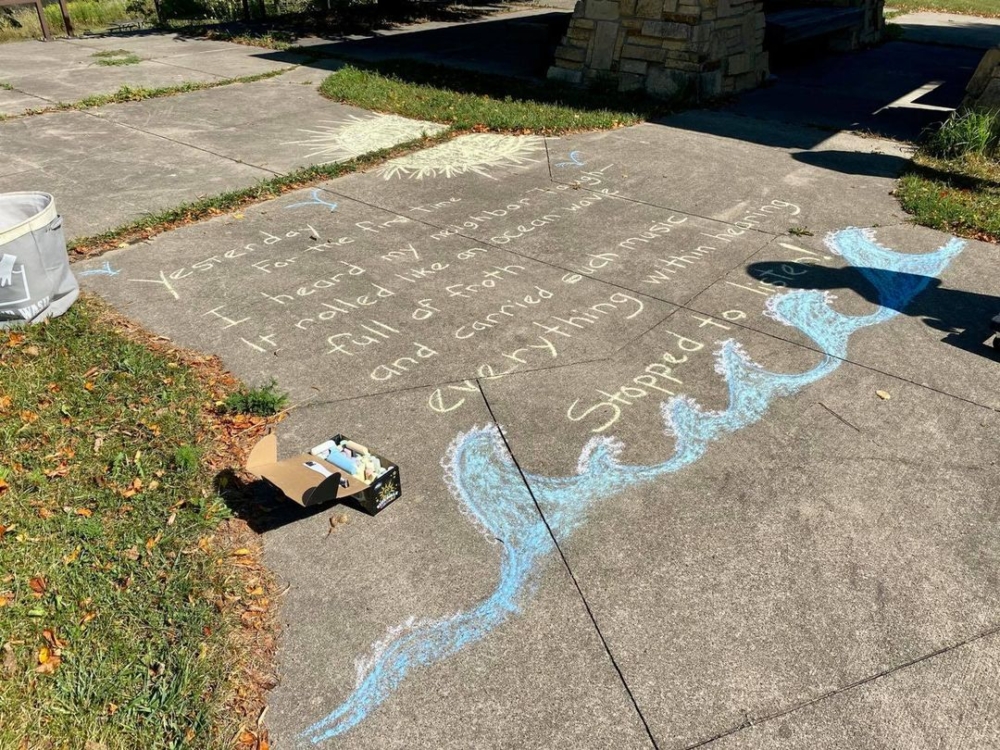 Yesterday
for the first time
I heard my neighbor laugh—
It rolled like an ocean wave
full of froth
and carried such music
everything within hearing
Stopped to listen!